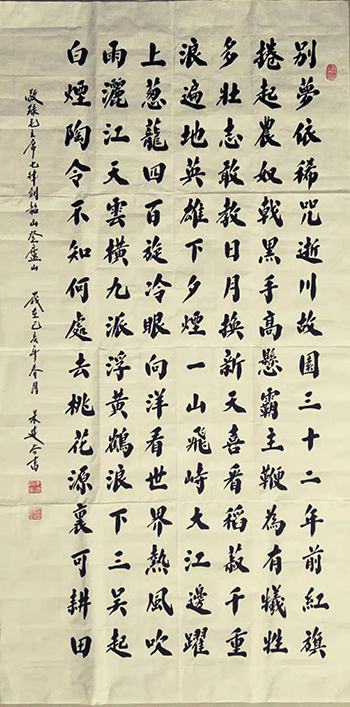 別夢依稀咒逝川故園三十二年前紅旗
捲起農奴戟黑手高懸霸主鞭為有犧牲
多壯志敢教日月換新天喜看稻菽千重
浪遍地英雄下夕煙一山飛峙大江邊躍
上葱龍四百旋冷眼向洋看世界熱風吹
雨灑江天雲橫九派浮黃鶴浪下三吳起
白煙陶令不知何處去桃花源裏可耕田
敬錄毛主席七律到韶山登廬山 歲在己亥年冬月 書